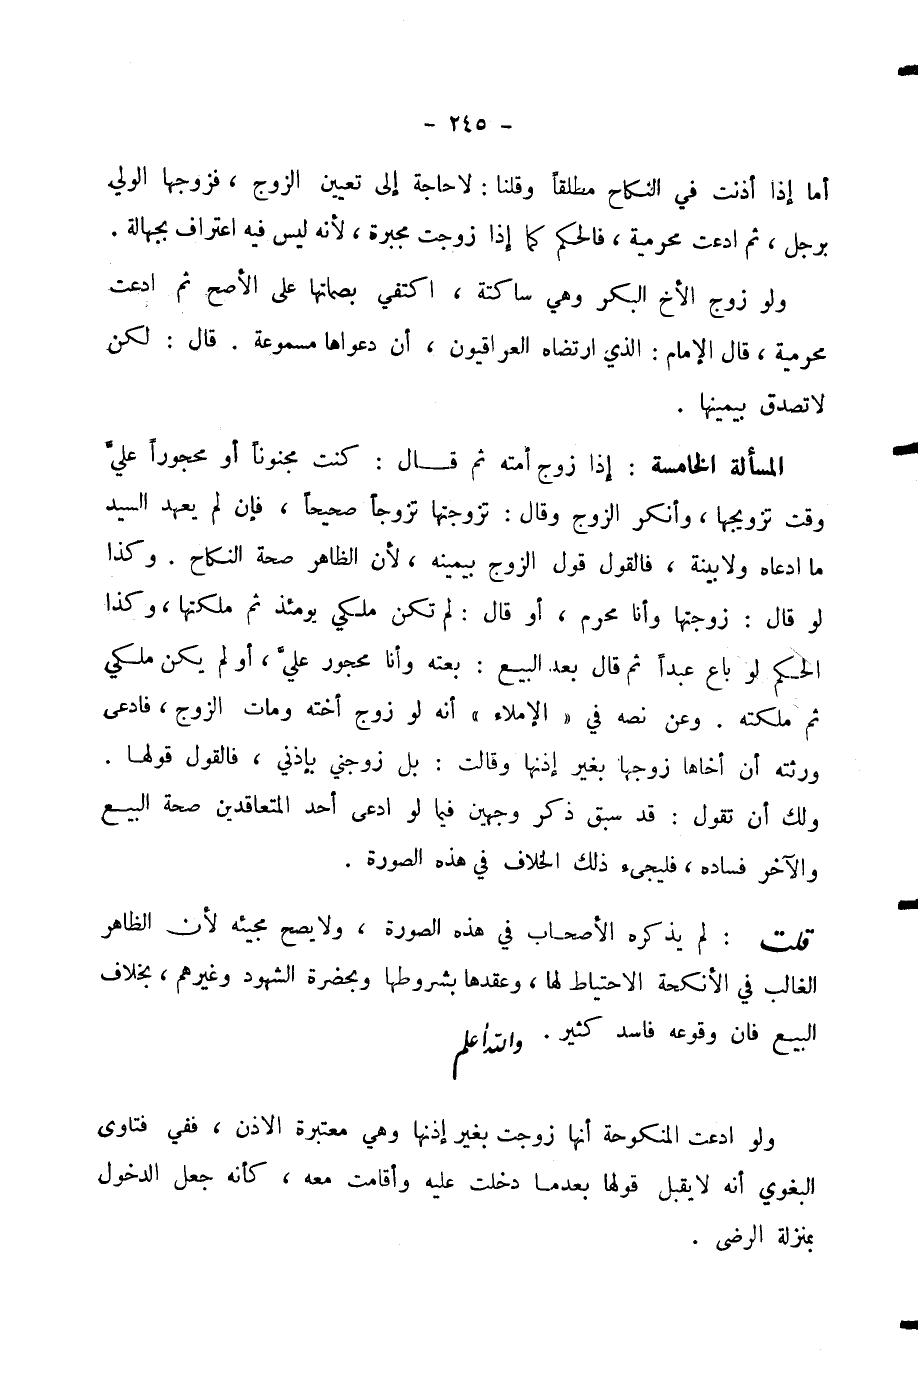 - ٢٤٥ -
أما إذا أذنت في النكاح مطلقاً وقلنا : لاحاجة إلى تعيين الزوج ، فزوجها الولي
برجل ، ثم ادعت محرمية ، فالحكم كما إذا زوجت مجبرة ، لأنه ليس فيه اعتراف بجهالة .
ولو زوج الأخ البكر وهي ساكتة ، اكتفي بصماتها على الأصح ثم ادعت
محرمية ، قال الإمام : الذي ارتضاه العراقيون ، أن دعواها مسموعة . قال : لكن
لاتصدق بيمينها .
المسألة الخامسة : إذا زوج أمته ثم قـــال : كنت مجنوناً أو محجوراً عليَّ
وقت تزويجها ، وأنكر الزوج وقال : تزوجتها تزوجاً صحيحاً ، فإن لم يعهد السيد
ما ادعاه ولابينة ، فالقول قول الزوج بيمينه ، لأن الظاهر صحة النكاح . وكذا
لو قال : زوجتها وأنا محرم ، أو قال : لم تكن ملكي يومئذ ثم ملكتها ، وكذا
الحكم لو باع عبداً ثم قال بعد البيع : بعته وأنا محجور عليَّ ، أو لم يكن ملكي
ثم ملكته . وعن نصه في « الإملاء » أنه لو زوج أخته ومات الزوج ، فادعى
ورثته أن أخاها زوجها بغير إذنها وقالت : بل زوجني بإذني ، فالقول قولها .
ولك أن تقول : قد سبق ذكر وجهين فيما لو ادعى أحد المتعاقدين صحة البيع
والآخر فساده ، فليجىء ذلك الخلاف في هذه الصورة .
قلت : لم يذكره الأصحاب في هذه الصورة ، ولايصح مجيئه لأن الظاهر
الغالب في الأنكحة الاحتياط لها ، وعقدها بشروطها وبحضرة الشهود وغيرهم ، بخلاف
البيع فان وقوعه فاسد كثير . والله أعلم
ولو ادعت المنكوحة أنها زوجت بغير إذنها وهي معتبرة الاذن ، ففي فتاوى
البغوي أنه لايقبل قولها بعدمـا دخلت عليه وأقامت معه ، كأنه جعل الدخول
بمنزلة الرضى .